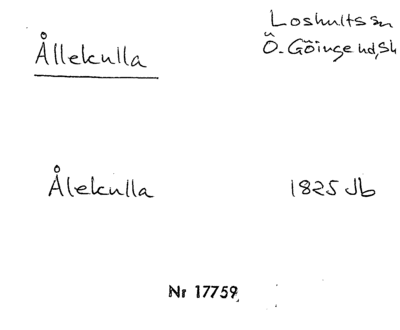 Loshults sn
Ållekulla Ö. Göinge hd, Sk
Ålekulla 1825 Jb
Nr 17759